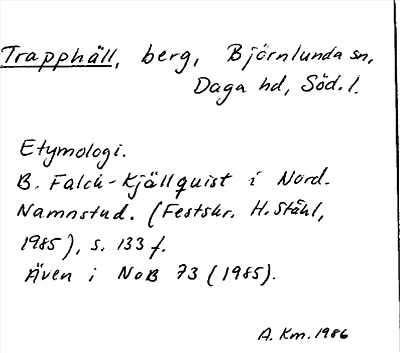 Trapphäll, berg, Björnlunda sn,
Daga hd, Söd. l.
Etymologi.
B. Falck-Kjällquist i Nord.
Namnstud. (Festskr. H. Ståhl,
1985), s. 133 f.
Även i NoB 73 (1985).
A. Km. 1986